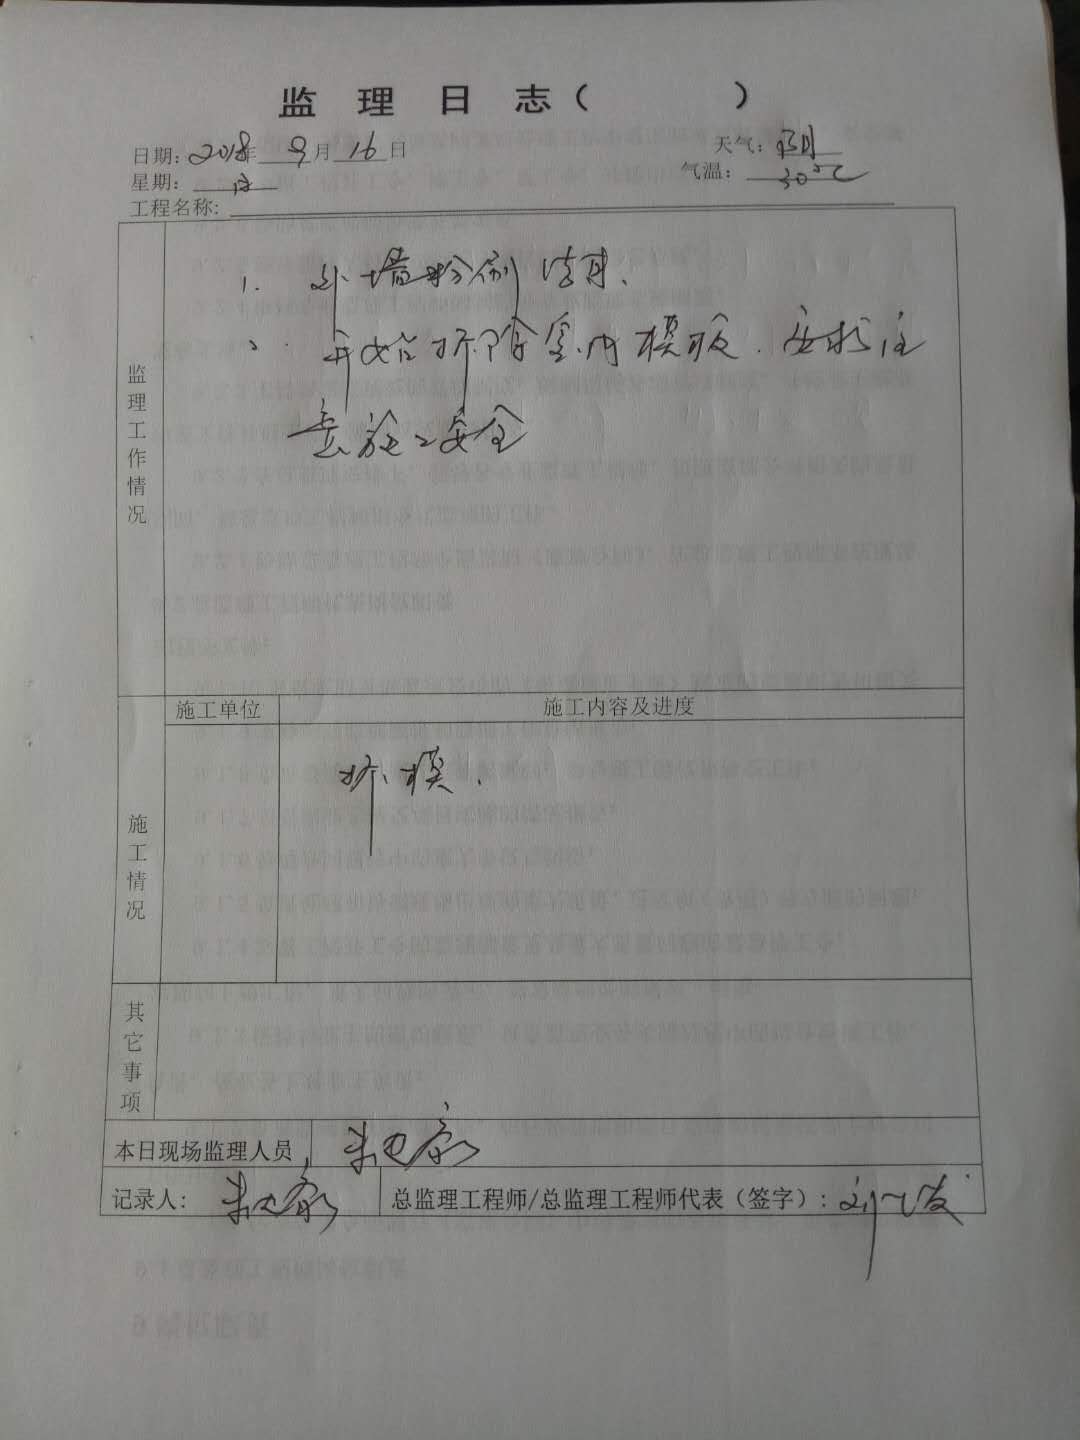 监 理 日 志（ ）
日期：2018年 9 月 16 日 天气：阴
星期：日 气温：30℃
工程名称：
监理工作情况
1. 外墙粉刷结束、
2. 开始拆除室内模板、安排注
意施工安全
施工单位 施工内容及进度
施工情况
拆模.
其它事项
本日现场监理人员
记录人： 总监理工程师/总监理工程师代表（签字）：